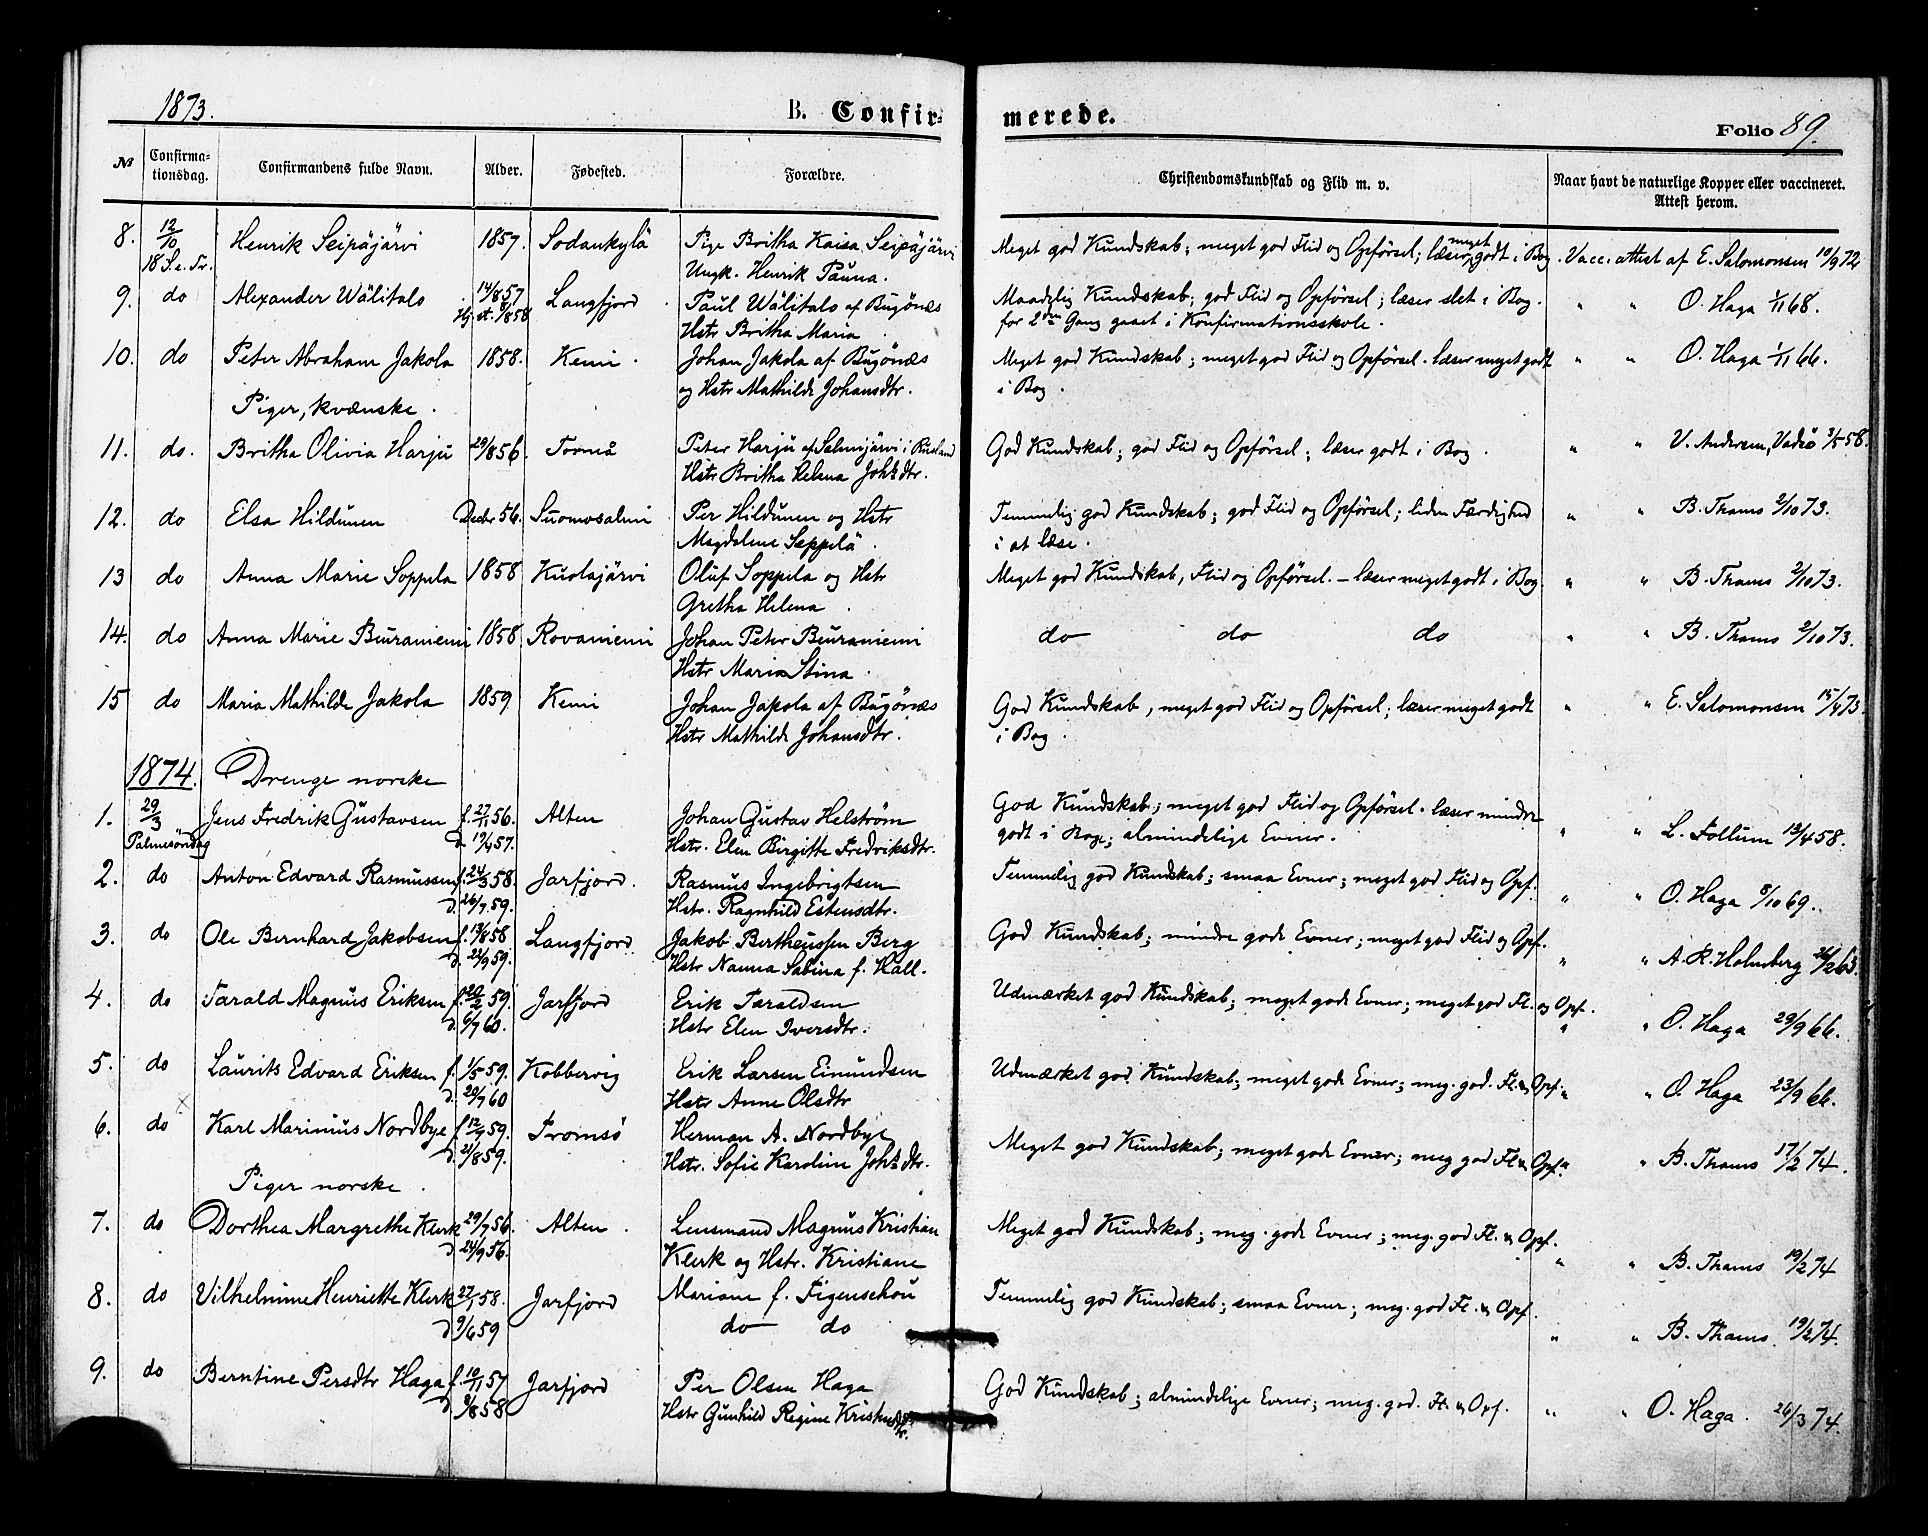 1873. B. Confirmerede. Folio 89.
№ Confirmationsdag. Confirmandens fulde Navn. Alder. Fødested. Forældre. Christendomskundskab og Flid m. v. Naar havt de naturlige Kopper eller vaccineret. Attest herom.
8. 12/10 Henrik Seipäjärvi 1857. Sodankylä Pige Britha Kaisa Seipäjärvi Meget god Kundskab; meget god Flid og Opførsel; læser meget godt i Bog. Vacc. attest af E. Salomonsen 10/9 72
18 S. e. Tr. Ungk. Henrik Pauna.
9. do Alexander Wälitalo 14/8 57 Langfjord Paul Wälitalo af Bugönæs Maadelig Kundskab; god Flid og Opførsel; læser slet i Bog. " " O. Haga 1/11 68.
Hstr Britha Maria for 2den Gang gaaet i Konfirmationsskole.
10. do Peter Abraham Jakola 1858. Kemi. Johan Jakola af Bugönæs Meget god Kundskab; meget god Flid og Opførsel. læser meget godt " " O. Haga 1/11 66.
og Hstr Mathilde Johansdtr. i Bog.
Piger, kvænske.
11. do. Britha Olivia Harju 29/8 56. Torneå Peter Harju af Salmijärvi i Rusland God Kundskab; god Flid og Opførsel; læser godt i Bog. " " V. Andersen, Vadsö 3/5 58.
Hstr Britha Helena Johsdtr.
12. do Elsa Hildunen Decbr 56. Suomosalmi Per Hildunen og Hstr Temmelig god Kundskab; god Flid og Opførsel; liden Færdighed " " B. Thams 2/10 73.
Magdalene Seppelä. i at læse.
13 do Anna Marie Soppela 1858 Kuolajärvi Oluf Soppela og Hstr Meget god Kundskab, Flid og Opførsel. – læser meget godt i Bog. " " B. Thams 2/10 73.
Gretha Helena.
14. do Anna Marie Beuraniemi 1858 Rovaniemi Johan Peter Beuraniemi do do do " " B. Thams 2/10 73.
Hstr Maria Stina.
15 do Maria Mathilde Jakola 1859 Kemi Johan Jakola af Bugönæs God Kundskab, meget god Flid og Opførsel; læser meget godt " " E. Salomonsen 15/4 73.
Hstr Mathilde Johansdtr. i Bog.
1874. Drenge norske
1. 29/3 Jens Fredrik Gustavsen f. 27/11 56. Alten Johan Gustav Helström God Kundskab; meget god Flid og Opførsel. læser mindre
Palmesöndag d. 19/4 57. Hstr. Elen Birgitte Fredriksdtr. godt i Bog; almindelige Evner. " " L. Follum 13/4 58.
2. do Anton Edvard Rasmussen f. 24/3 58. Jarfjord. Rasmus Ingebrigtsen Temmelig god Kundskab; smaa Evner; meget god Flid og Opf.
d. 26/7 59. Hstr. Ragnhild Estensdtr. " " O. Haga 8/10 69.
3. do Ole Bernhard Jakobsen f. 13/8 58 Langfjord. Jakob Bertheussen Berg God Kundskab; mindre gode Evner; meget god Flid og Opf.
d. 24/9 59. Hstr Nanna Sabina f. Kall. " " A. R. Holmberg 26/2 63.
4. do Tarald Magnus Eriksen f. 20/2 59. Jarfjord Erik Taraldsen Udmærket god Kundskab; meget gode Evner; meget god Fl. og Opf.
d. 6/7 60. Hstr Elen Iversdtr. " " O. Haga 29/9 66.
5. do Laurits Edvard Eriksen f. 1/5 59. Kobbervig Erik Larsen Eimundsen Udmærket god Kundskab; meget gode Evner; meg. god. Fl. & Opf. " " O. Haga 23/9 66.
d. 20/7 60 Hstr Anne Olsdtr
6. do Karl Marinius Nordbye f. 12/4 59. Tromsö Herman A. Nordbye Meget god Kundskab; meget gode Evner; meg god Fl & Opf. " " B. Thams 17/2 74.
d. 21/8 59. Hstr. Sofie Karoline Johsdtr.
Piger norske.
7. do Dorthea Margrethe Klerk 29/7 56. Alten. Lensmand Magnus Kristian Meget god Kundskab; meg. gode Evner; meg. god Fl. & Opf.
d 24/9 56. Klerk og Hstr. Kristiane " " B. Thams 19/2 74
8. do Vilhelmine Henriette Klerk 27/1 58. Jarfjord Mariane f. Figenschou Temmelig god Kundskab; smaa Evner; meg. god Fl. & Opf.
d 9/6 59 do do " " B. Thams. 19/2 74.
9. do Berntine Persdtr Haga f. 10/11 57 Jarfjord Per Olsen Haga God Kundskab; almindelige Evner; meg. god. Fl. & Opf.
d 9/8 58 Hstr Gunhild Regine Kristensdtr. " " O. Haga. 26/3 74.